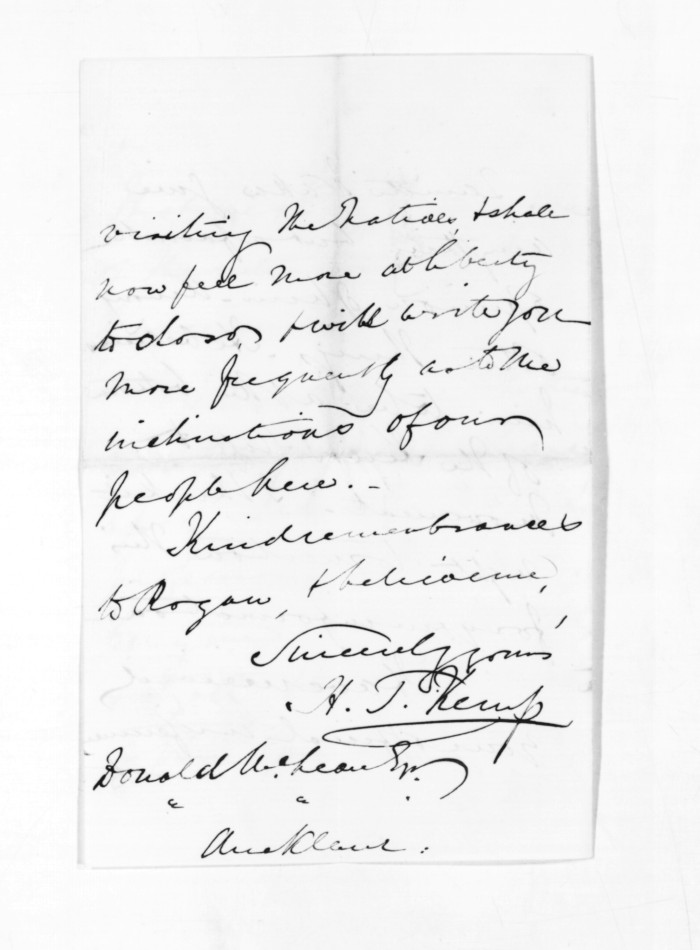 visiting the Natives, & shall
now feel more at liberty
to do so, & will write you
more frequently as to the
inclinations of our
people here. -
Kind remembrances
to Rogan, & believe me,
Sincerely yours
H. T. Kemp
Donald McLean Esqr.
" " .
Auckland.